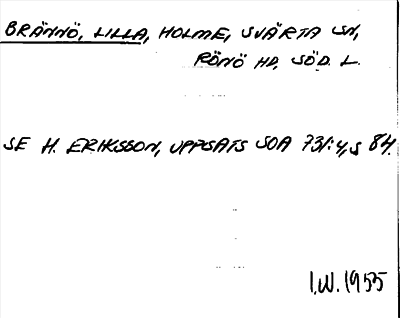 BRÄNNÖ, LILLA, HOLME, SVÄRTA SN,
RÖNÖ HD, SÖD. L.
SE H. ERIKSSON, UPPSATS SOA 731:4, S 84.
I.W. 1955